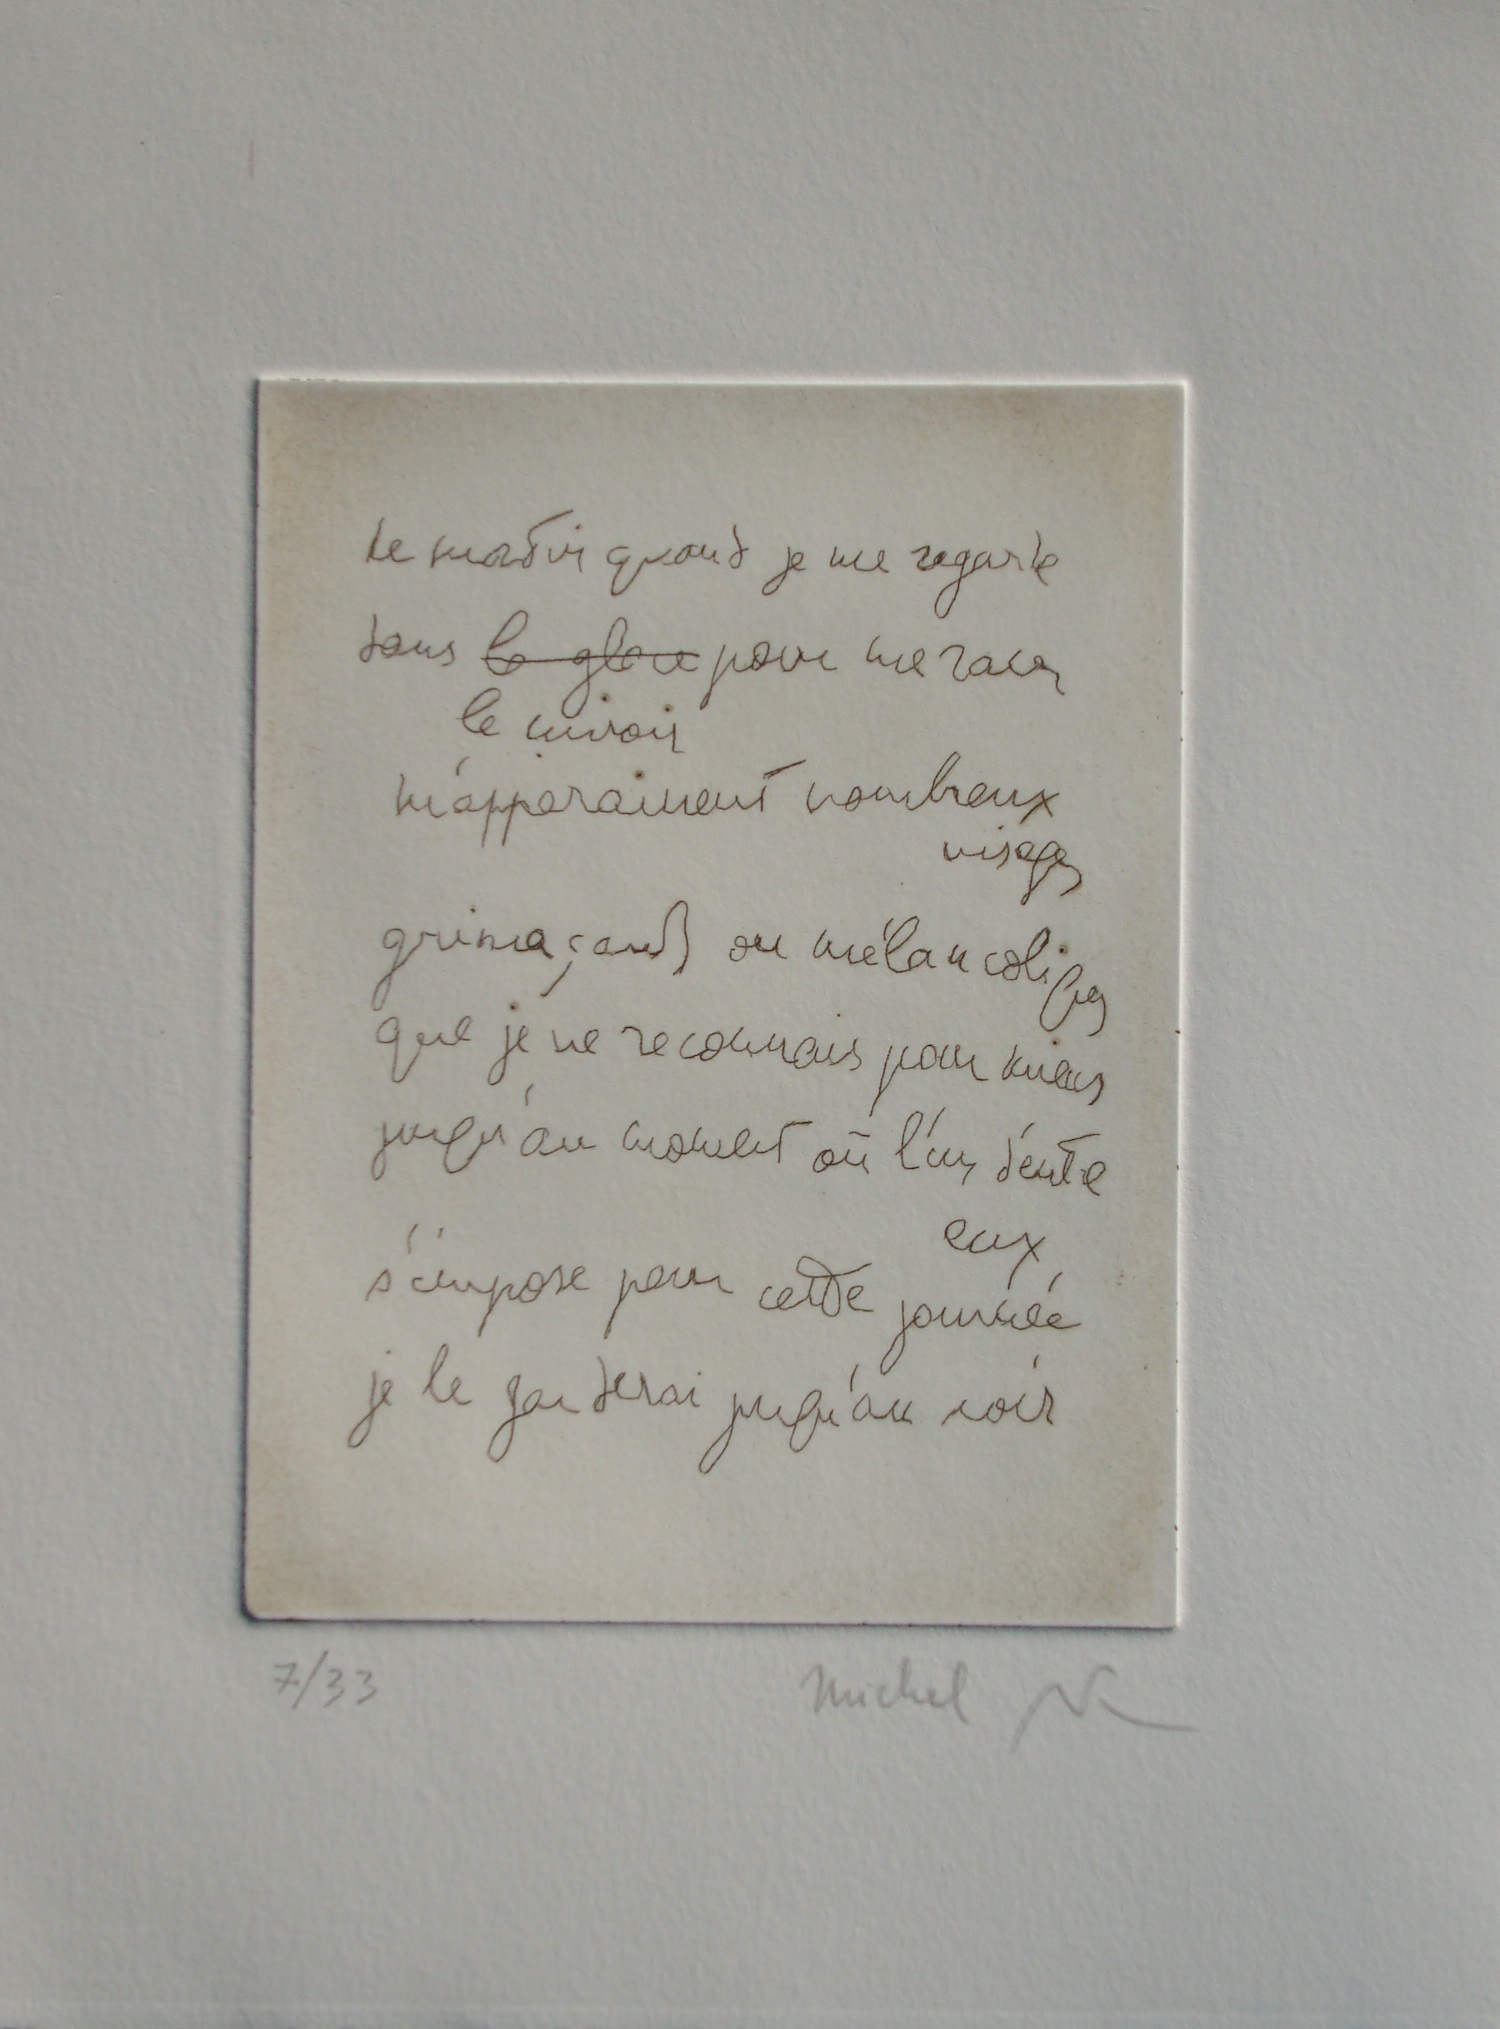 Le matin quand je me regarde
dans la glace pour me raser
le miroir
m'apparaissent nombreux
visages
grimaçants ou mélancoliques
que je ne reconnais pour miens
jusqu'au moment où l'un d'entre
eux
s'impose pour cette journée
je le garderai jusqu'au soir
7/33
Michel